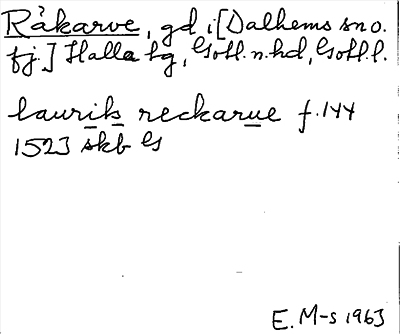 Råkarve, gd i [Dalhems sn o.
fj.] Halla tg, Gotl. n. hd, Gotl. l.
laurik reckarue f. 144
1523 skb G
E. M-s 1963